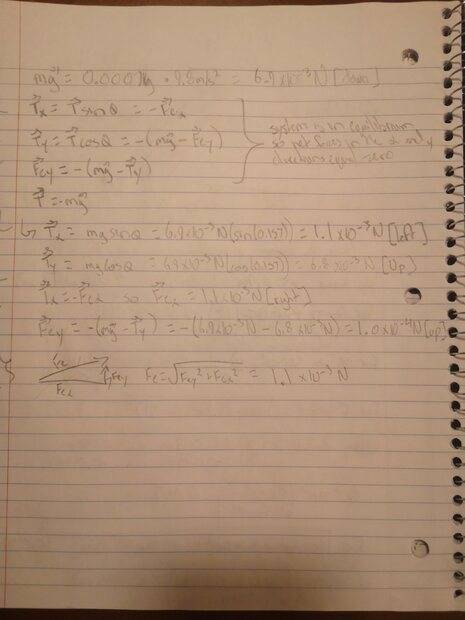 mg⃗ = 0.0007kg • 9.8m/s² = 6.9x10⁻³N [down]
T⃗x = T⃗sinθ = -F⃗cx
T⃗y = T⃗cosθ = -(mg⃗ - F⃗cy)
F⃗cy = -(mg⃗ - T⃗y)
system is in equilibrium
so net forces in the x and y
directions equal zero
T⃗ = -mg⃗
↳ T⃗x = mg sinθ = 6.9x10⁻³N(sin(0.157)) = 1.1x10⁻³N [left]
T⃗y = mg cosθ = 6.9x10⁻³N(cos(0.157)) = 6.8x10⁻³N [up]
T⃗x = -F⃗cx so F⃗cx = 1.1x10⁻³N [right]
F⃗cy = -(mg⃗ - T⃗y) = -(6.9x10⁻³N - 6.8x10⁻³N) = 1.0x10⁻⁴N [up]
Fc Fcy Fc = √Fcy² + Fcx² = 1.1x10⁻³N
Fcx